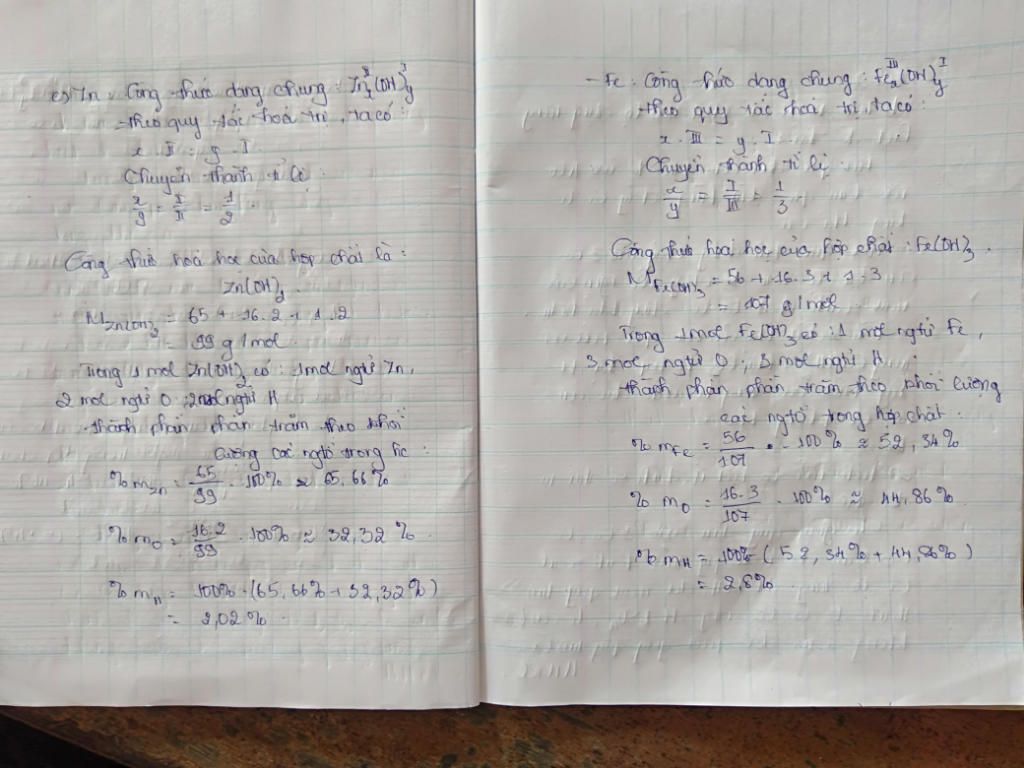 c) Zn : Công thức dạng chung : Znₓ(OH)ᵧ
Theo quy tắc hoá trị, ta có :
x . II = y . I
Chuyển thành tỉ lệ :
x/y = I/II = 1/2
Công thức hoá học của hợp chất là :
Zn(OH)₂
M Zn(OH)₂ = 65 + 16.2 + 1.2
= 99 g/mol
Trong 1 mol Zn(OH)₂ có : 1 mol ngtử Zn,
2 mol ngtử O ; 2 mol ngtử H
Thành phần phần trăm theo khối
lượng các ngtố trong h/c :
% m Zn = 65/99 . 100% ≈ 65,66%
% m O = 16.2/99 . 100% ≈ 32,32 %
% m H = 100% - (65,66% + 32,32%)
= 2,02%
- Fe : Công thức dạng chung : Fe III ₓ(OH) I ᵧ
Theo quy tắc hoá trị, ta có :
x . III = y . I
Chuyển thành tỉ lệ :
x/y = I/III = 1/3
Công thức hoá học của hợp chất : Fe(OH)₃.
M Fe(OH)₃ = 56 + 16.3 + 1.3
= 107 g/mol
Trong 1 mol Fe(OH)₃ có : 1 mol ngtử Fe,
3 mol ngtử O ; 3 mol ngtử H
Thành phần phần trăm theo khối lượng
các ngtố trong hợp chất :
% m Fe = 56/107 . 100% ≈ 52,34%
% m O = 16.3/107 . 100% ≈ 44,86%
% m H = 100% - (52,34% + 44,86%)
= 2,8%